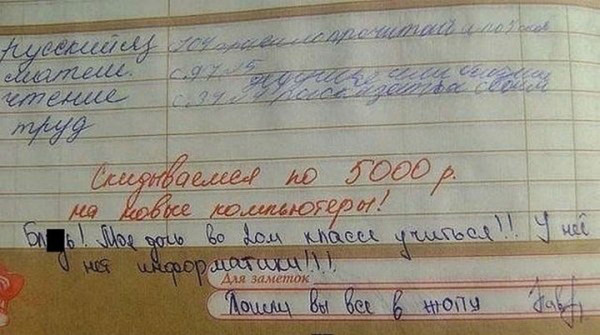 русский яз 104 правило прочитать и
матем. с. 97 № 5
чтение с. 34 № 4 рассказать своим
труд
Скидываемся по 5000 р.
на новые компьютеры!
Бл дь! Моя дочь во 2ом классе учиться!! У неё
нет информатики!!!!
Для заметок
Пошли вы все в жопу